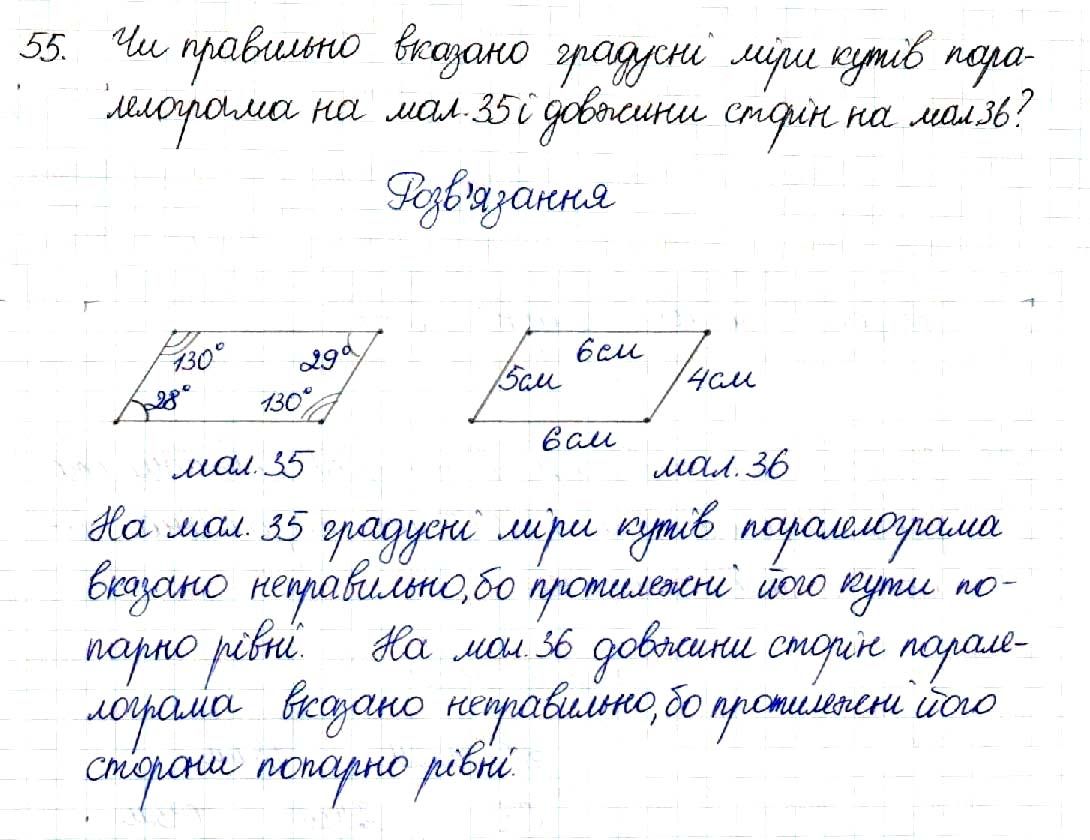 55. Чи правильно вказано градусні міри кутів пара-
лелограма на мал. 35 і довжини сторін на мал 36?
Розв'язання
130° 29° 6 см
5 см 4 см
28° 130°
6 см
мал. 35 мал. 36
На мал. 35 градусні міри кутів паралелограма
вказано неправильно, бо протилежні його кути по-
парно рівні. На мал. 36 довжини сторін парале-
лограма вказано неправильно, бо протилежні його
сторони попарно рівні.